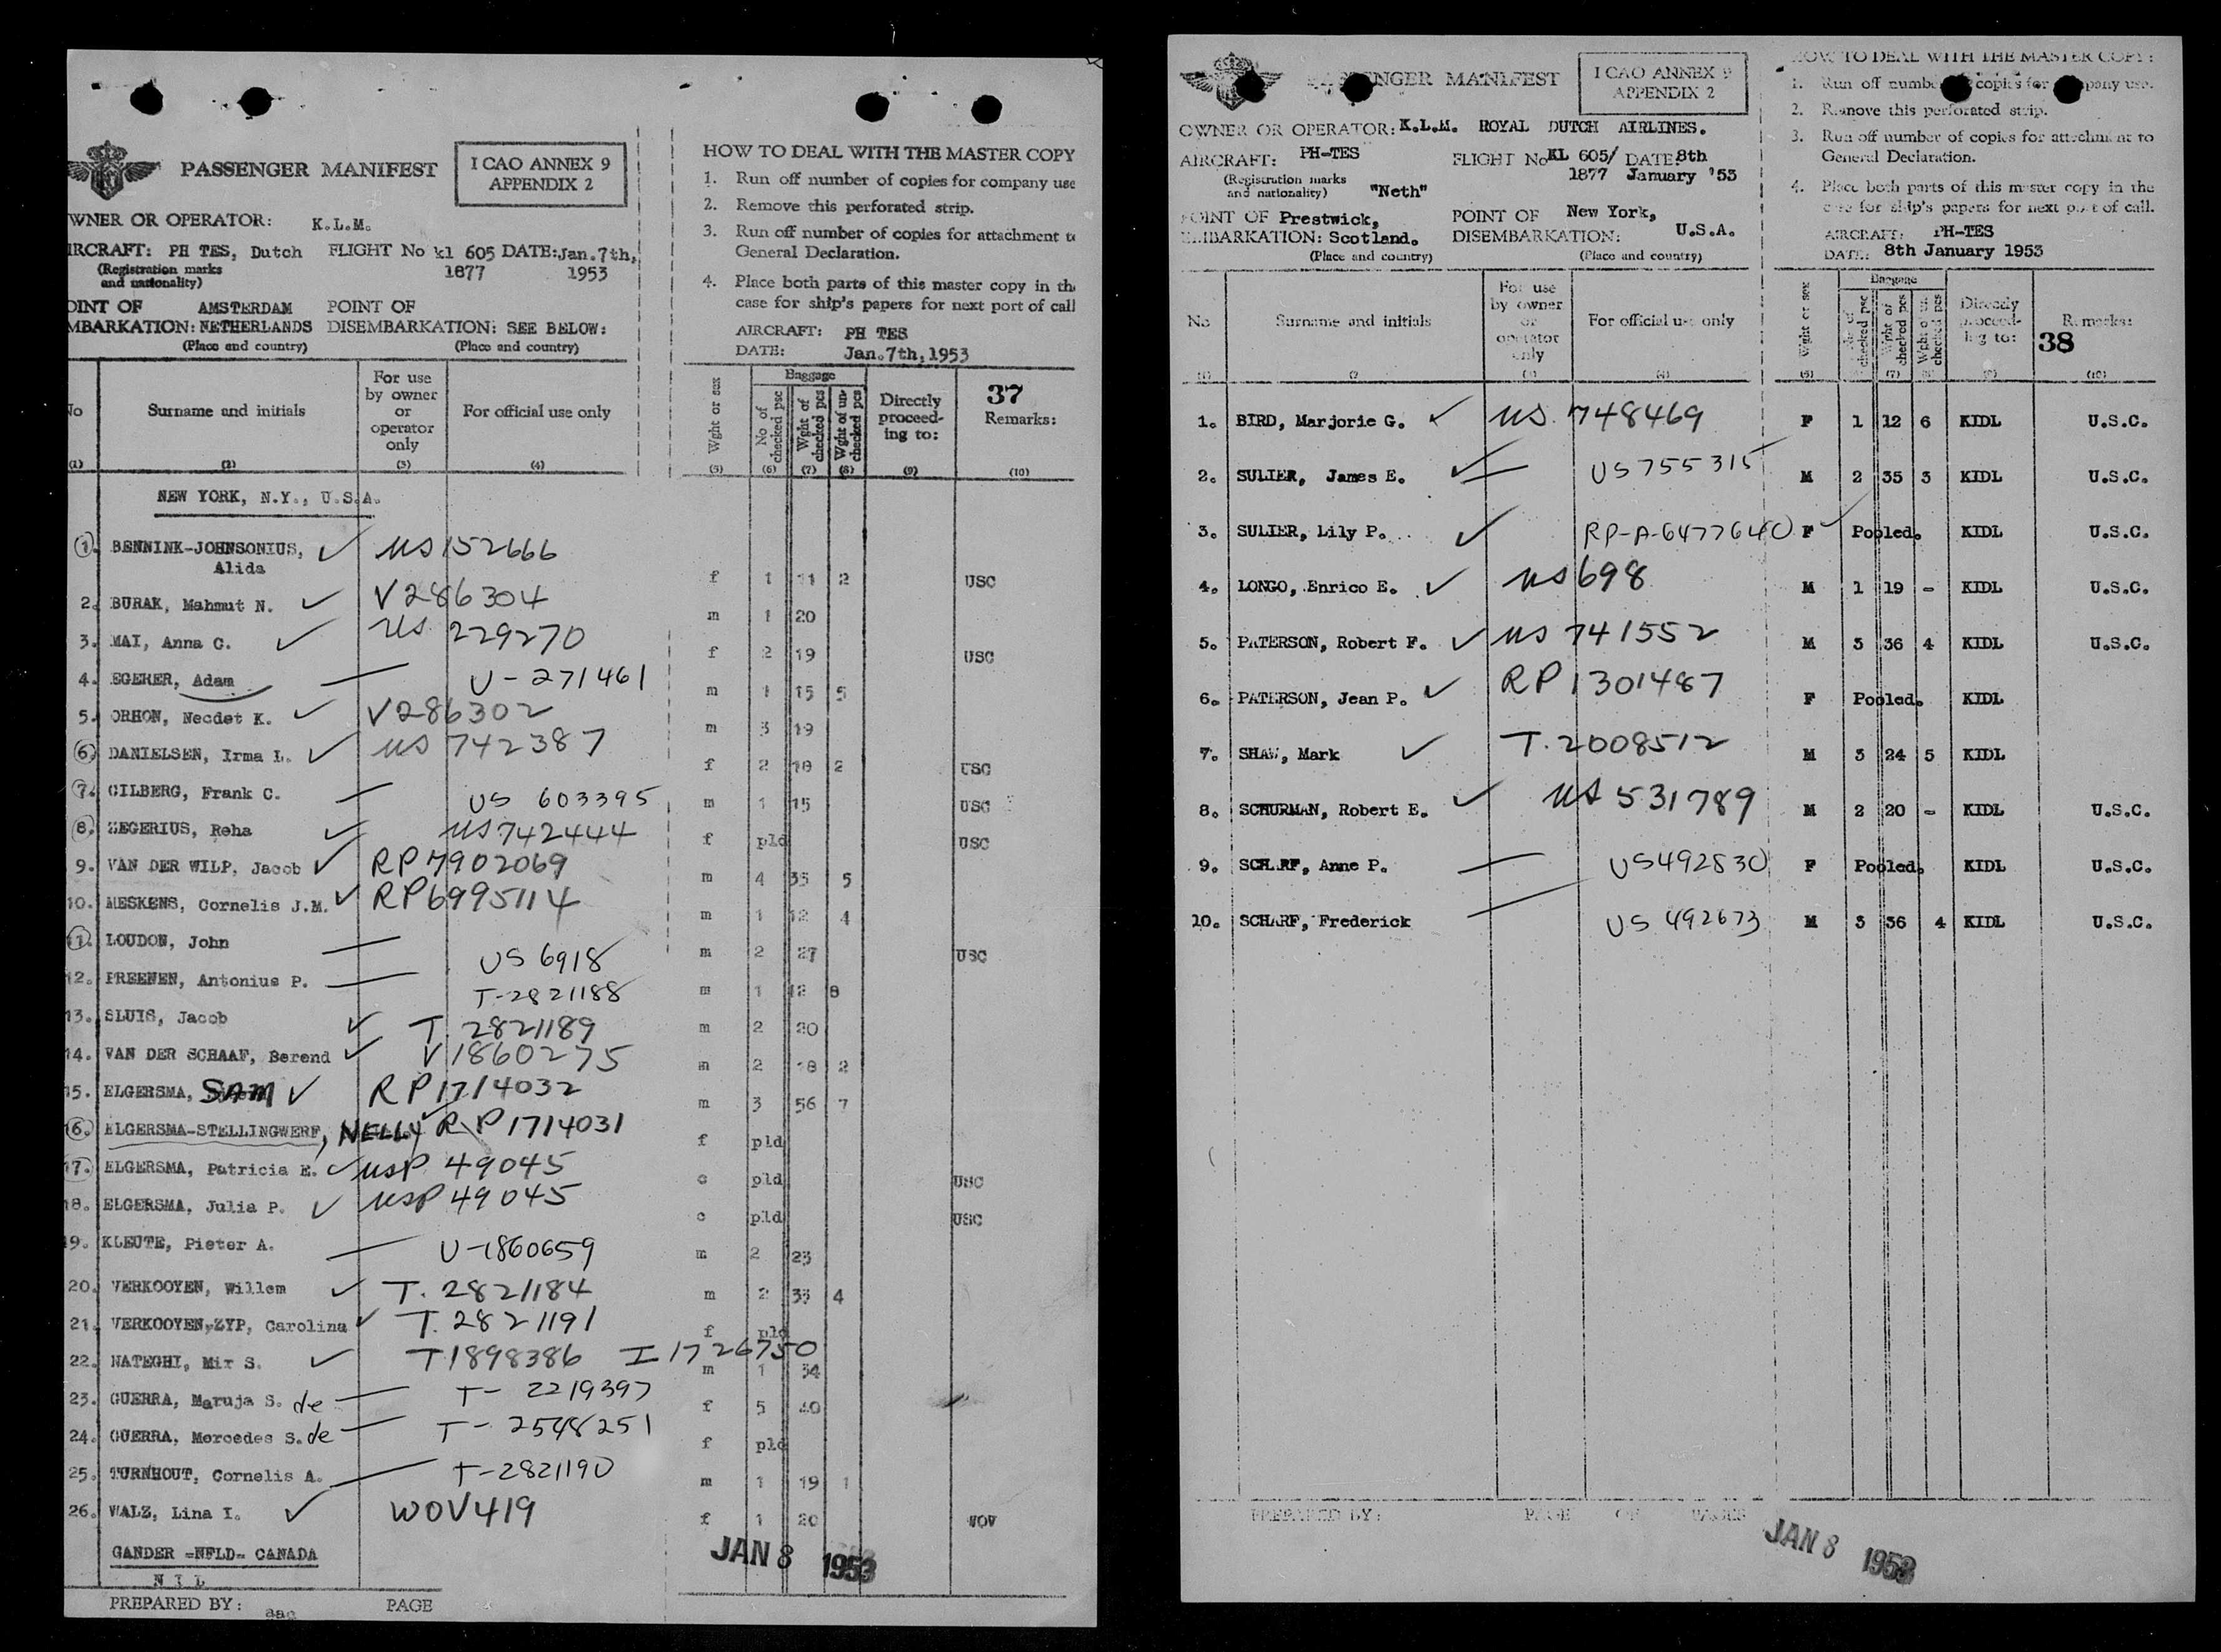 PASSENGER MANIFEST
I CAO ANNEX 9
APPENDIX 2
WNER OR OPERATOR: K.L.M.
IRCRAFT: PH TES, Dutch FLIGHT No kl 605 DATE: Jan.7th,
(Registration marks 1877 1953
and nationality)
OINT OF AMSTERDAM POINT OF
MBARKATION: NETHERLANDS DISEMBARKATION: SEE BELOW:
(Place and country) (Place and country)
HOW TO DEAL WITH THE MASTER COPY
1. Run off number of copies for company use
2. Remove this perforated strip.
3. Run off number of copies for attachment to
General Declaration.
4. Place both parts of this master copy in the
case for ship's papers for next port of call
AIRCRAFT: PH TES
DATE: Jan.7th,1953
No Surname and initials For use by owner or operator only For official use only Wght or sex Baggage No of checked psc Wght of checked pcs Wght of un-checked pcs Directly proceed-ing to: 37 Remarks:
(1) (2) (3) (4) (5) (6) (7) (8) (9) (10)
NEW YORK, N.Y., U.S.A.
1. BENNINK-JOHNSONIUS, ✓ US 152666
Alida f 1 11 2 USC
2. BURAK, Mahmut N. ✓ V286304 m 1 20
3. MAI, Anna C. ✓ US 229270 f 2 19 USC
4. EGERER, Adam — U-271461 m 1 15 5
5. ORHON, Necdet K. ✓ V286302 m 3 19
6. DANIELSEN, Irma L. ✓ US 742387 f 2 18 2 USC
7. GILBERG, Frank C. — US 603395 m 1 15 USC
8. HEGERIUS, Reha ✓ US 742444 f pld USC
9. VAN DER WILP, Jacob ✓ RP7902069 m 4 35 5
10. MESKENS, Cornelis J.M. ✓ RP6995114 m 1 12 4
11. LOUDON, John — US 6918 m 2 27 USC
12. PREENEN, Antonius P. — T-2821188 m 1 12 8
13. SLUIS, Jacob ✓ T. 2821189 m 2 20
14. VAN DER SCHAAF, Berend ✓ V1860275 m 2 18 2
15. ELGERSMA, SAM ✓ RP1714032 m 3 56 7
16. ELGERSMA-STELLINGWERF, NELLY ✓ RP1714031 f pld
17. ELGERSMA, Patricia E. ✓ USP 49045 c pld USC
18. ELGERSMA, Julia P. ✓ USP 49045 c pld USC
19. KLEUTE, Pieter A. — U-1860659 m 2 23
20. VERKOOYEN, Willem ✓ T. 2821184 m 2 33 4
21. VERKOOYEN-ZYP, Carolina ✓ T. 2821191 f pld
22. NATEGHI, Mir S. ✓ T1898386 I1726750 m 1 34
23. GUERRA, Maruja S. de — T- 2219397 f 5 40
24. GUERRA, Mercedes S. de — T- 2548251 f pld
25. TURNHOUT, Cornelis A. — T-2821190 m 1 19 1
26. WALZ, Lina I. ✓ WOV419 f 1 20 WOV
GANDER -NFLD- CANADA
N I L
JAN 8 1953
PREPARED BY: aac PAGE
PASSENGER MANIFEST
I CAO ANNEX 9
APPENDIX 2
OWNER OR OPERATOR: K.L.M. ROYAL DUTCH AIRLINES.
AIRCRAFT: PH-TES FLIGHT No KL 605/ DATE: 8th
(Registration marks and nationality) "Neth" 1877 January '53
POINT OF Prestwick, POINT OF New York,
EMBARKATION: Scotland. DISEMBARKATION: U.S.A.
(Place and country) (Place and country)
HOW TO DEAL WITH THE MASTER COPY:
1. Run off number of copies for company use.
2. Remove this perforated strip.
3. Run off number of copies for attachment to
General Declaration.
4. Place both parts of this master copy in the
case for ship's papers for next port of call.
AIRCRAFT: PH-TES
DATE: 8th January 1953
No Surname and initials For use by owner or operator only For official use only Wght or sex Baggage checked psc Wght of checked pcs Wght of un-checked pcs Directly proceed-ing to: Remarks: 38
(1) (2) (3) (4) (5) (7) (8) (9) (10)
1. BIRD, Marjorie G. ✓ US 748469 F 1 12 6 KIDL U.S.C.
2. SULIER, James E. ✓ US 755315 M 2 35 3 KIDL U.S.C.
3. SULIER, Lily P. ✓ RP-A-6477640 F ✓ Pooled. KIDL U.S.C.
4. LONGO, Enrico E. ✓ US 698 M 1 19 - KIDL U.S.C.
5. PATERSON, Robert F. ✓ US 741552 M 3 36 4 KIDL U.S.C.
6. PATERSON, Jean P. ✓ RP1301487 F Pooled. KIDL
7. SHAW, Mark ✓ T. 2008512 M 3 24 5 KIDL
8. SCHURMAN, Robert E. ✓ US 531789 M 2 20 - KIDL U.S.C.
9. SCHARF, Anne P. — US 492830 F Pooled. KIDL U.S.C.
10. SCHARF, Frederick — US 492673 M 3 36 4 KIDL U.S.C.
PREPARED BY: PAGE OF PAGES
JAN 8 1953